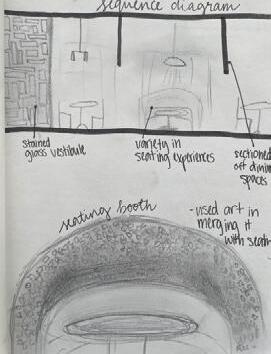 sequence diagram
stained
glass vestibule
variety in
seating experiences
sectioned
off dining
spaces
seating booth
-used art in
merging it
with